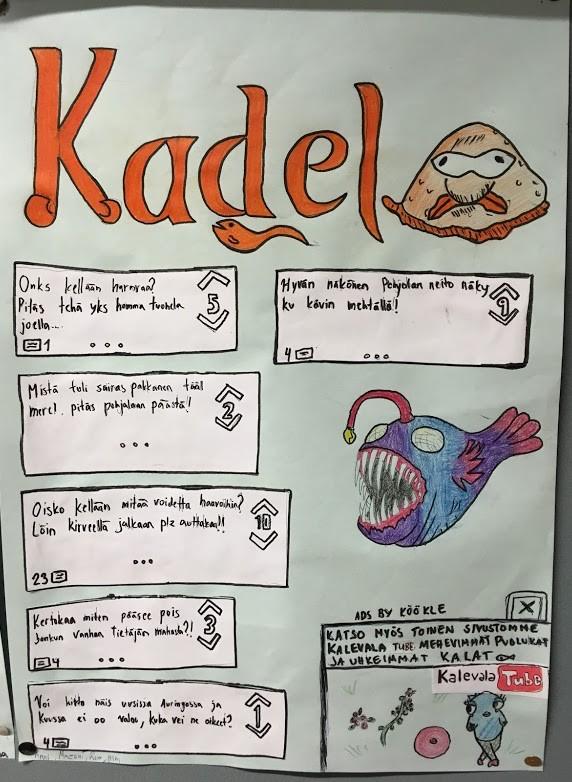 Kadel
Onks kellään haravaa?
Pitäs tehä yks homma tuohela
joella...
5
1
...
Hyvän näkönen Pohjolan neito näky
ku kävin mehtällä!
9
4
...
Mistä tuli sairas pakkanen tääl
merel. pitäs pohjolaan päästä!
2
...
Oisko kellään mitää voidetta haavoihin?
Löin kirveellä jalkaan plz auttakaa!!
10
23
...
Kertokaa miten pääsee pois
jonkun vanhan Tietäjän mahasta?!
3
4
...
Voi hitto näis uusissa Auringossa ja
Kuussa ei oo valoo, kuka vei ne oikeet?
1
4
...
ADS BY KÖÖKLE
X
KATSO MYÖS TOINEN SIVUSTOMME
KALEVALA TUBE MEREVIMMÄT PUOLUKAT
JA UHKEIMMAT KALAT
Kalevala Tube